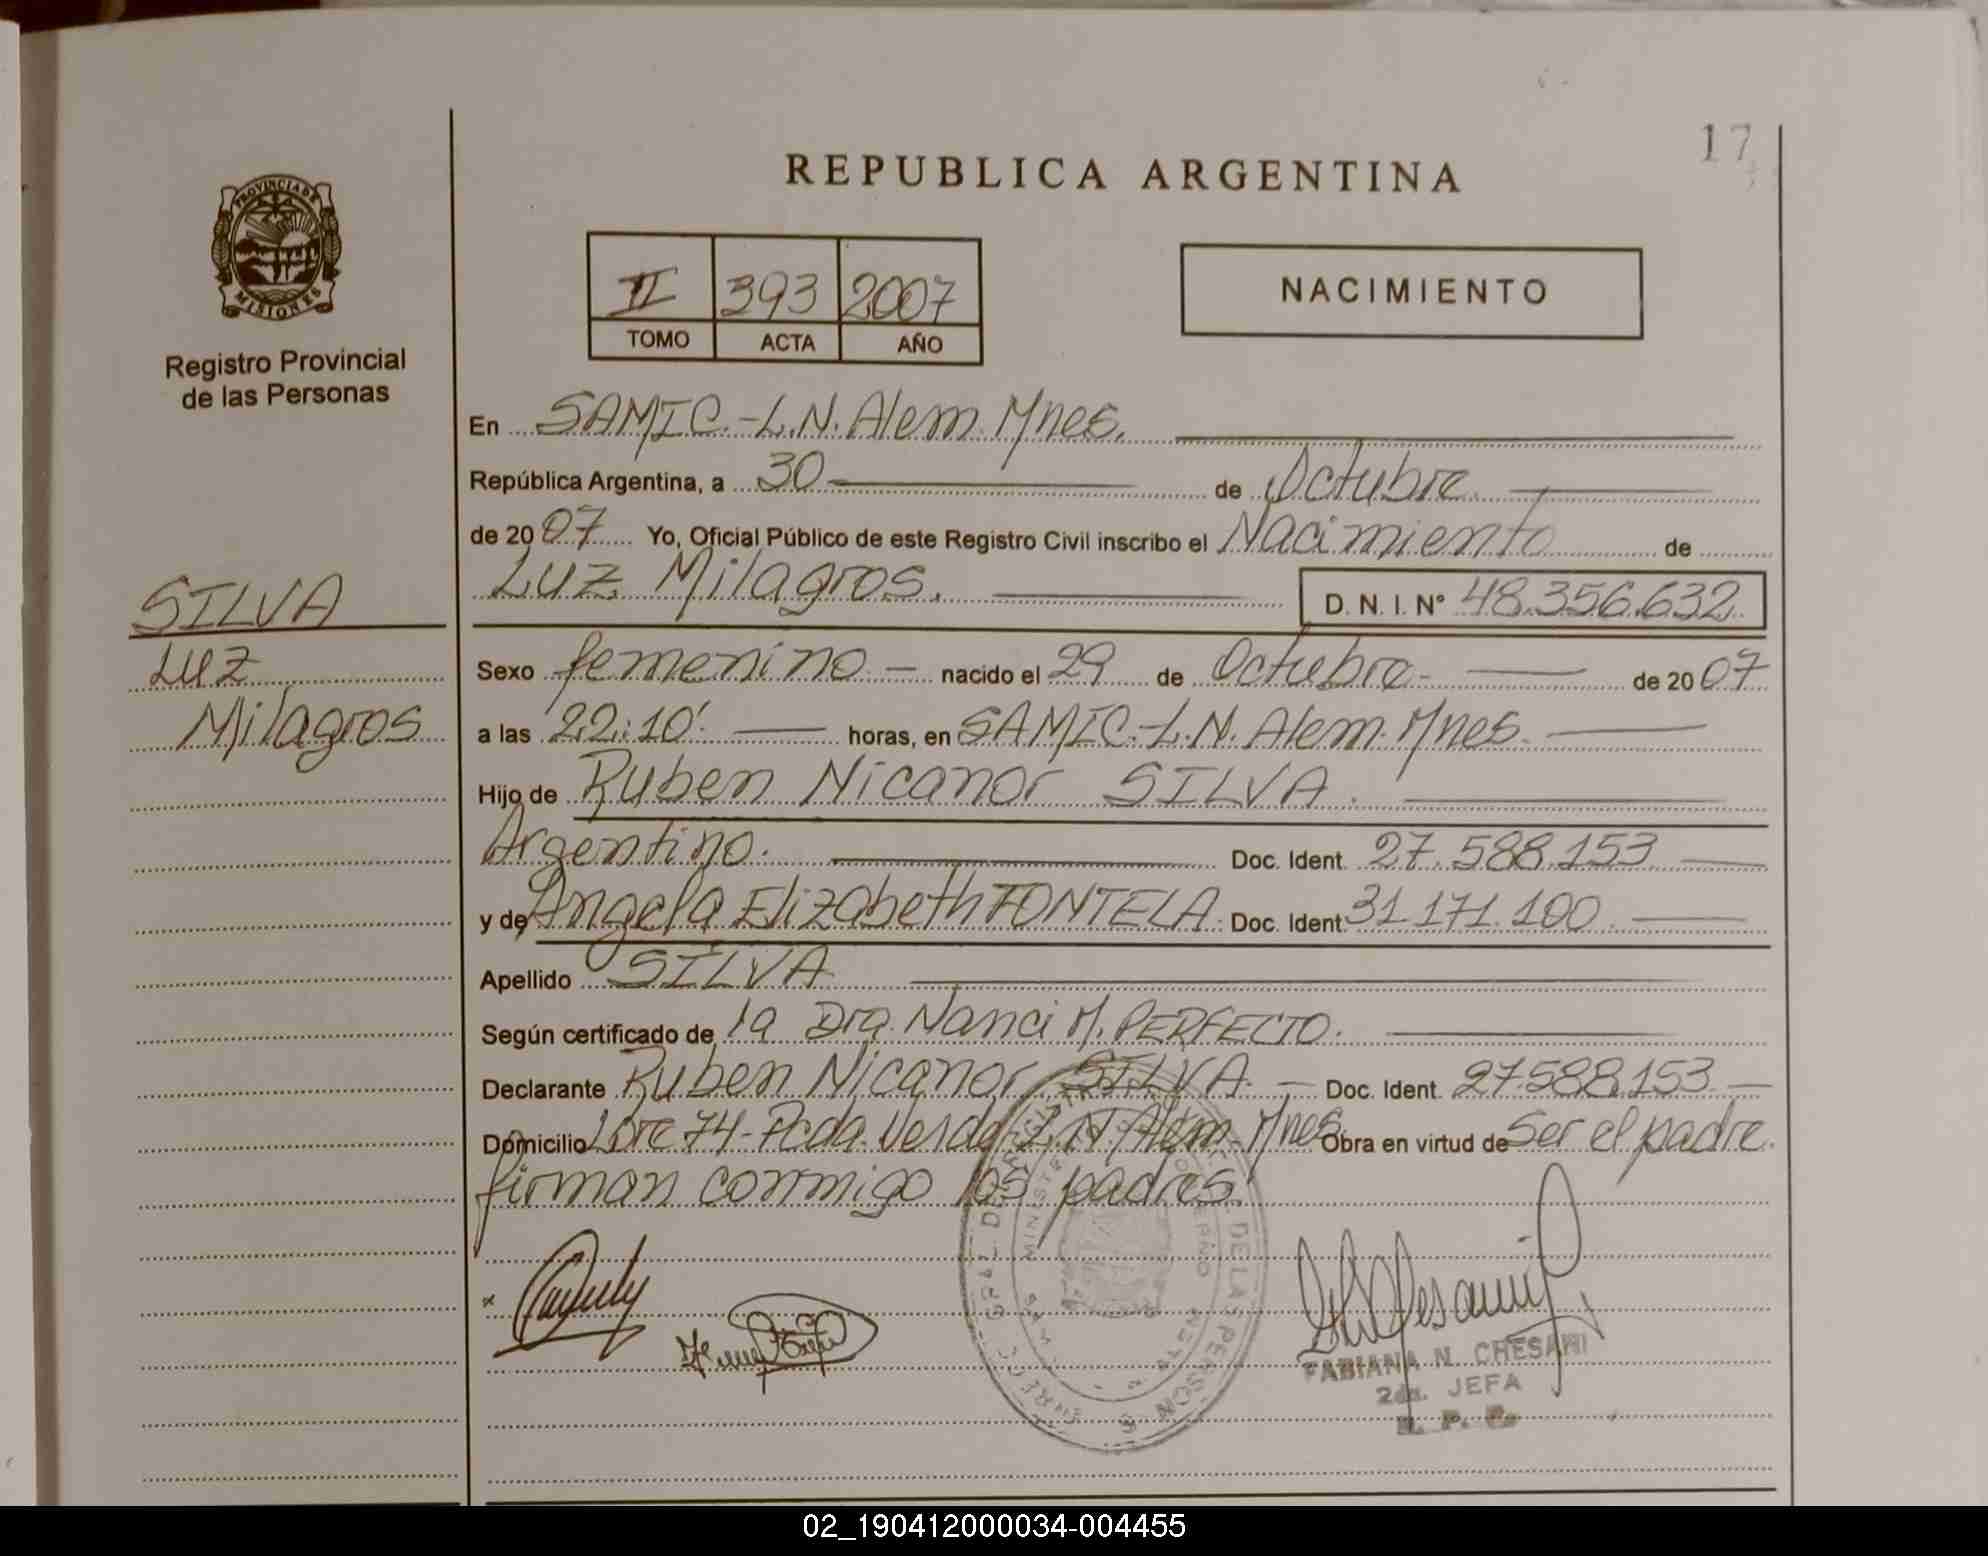 17
REPUBLICA ARGENTINA
PROVINCIA DE
MISIONES
Registro Provincial
de las Personas
II 393 2007
TOMO ACTA AÑO
NACIMIENTO
En SAMIC.-L.N. Alem. Mnes.
República Argentina, a 30 de Octubre
de 2007 Yo, Oficial Público de este Registro Civil inscribo el Nacimiento de
Luz Milagros. D. N. I. N° 48.356.632
SILVA
Luz
Milagros
Sexo femenino - nacido el 29 de Octubre - de 2007
a las 22:10' horas, en SAMIC.-L.N. Alem. Mnes.
Hijo de Ruben Nicanor SILVA.
Argentino. Doc. Ident. 27.588.153
y de Angela Elizabeth FONTELA. Doc. Ident. 31.171.100
Apellido SILVA
Según certificado de la Dra. Nanci M. PERFECTO.
Declarante Ruben Nicanor SILVA. - Doc. Ident. 27.588.153
Domicilio Lote 74-Pcda. Verde-L.N. Alem-Mnes Obra en virtud de Ser el padre.
firman conmigo los padres.
FABIANA N. CHESANI
2da. JEFA
R. P. P.
02_190412000034-004455